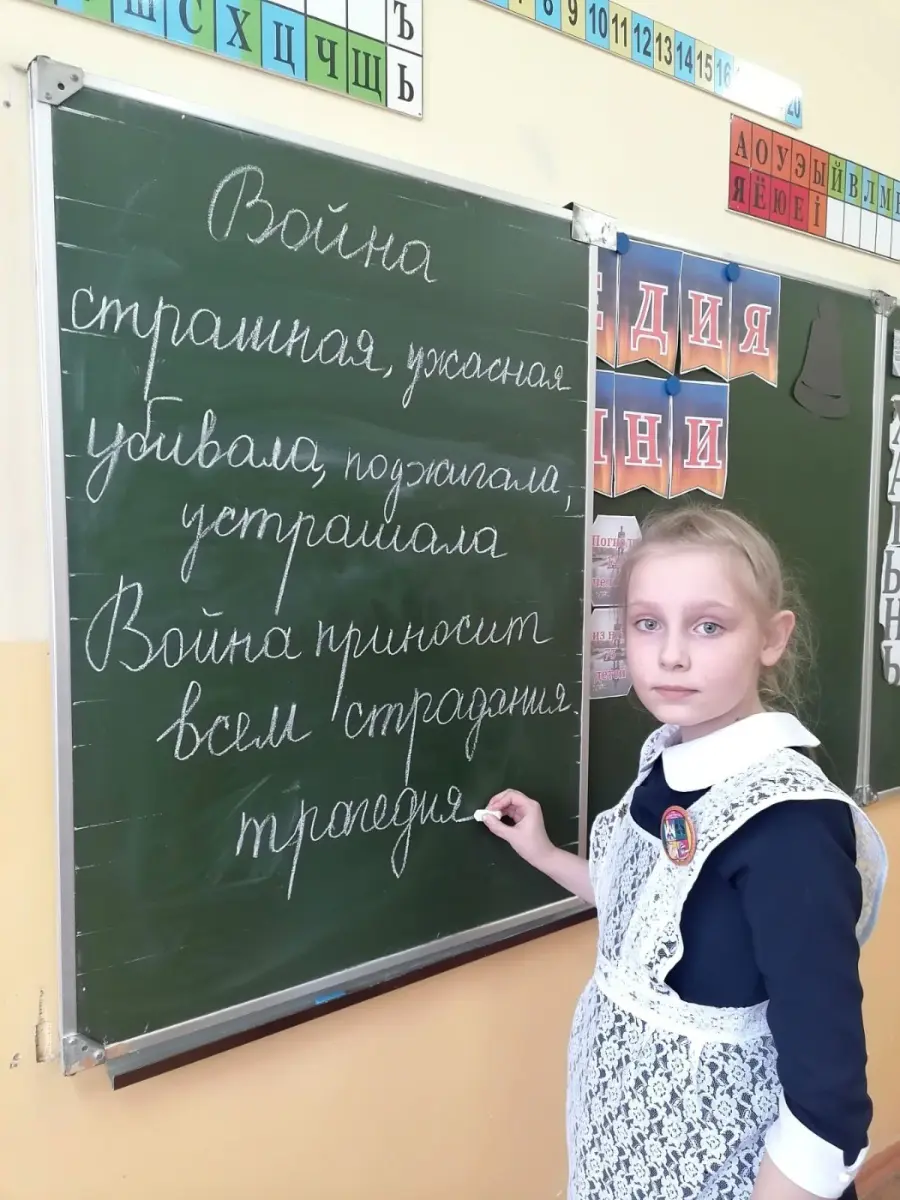 Ш С Х Ц Ч Щ Ъ
Ь
8 9 10 11 12 13 14 15 16
20
А О У Э Ы Й В Л М
Я Ё Ю Е І
Война
страшная, ужасная
убивала, поджигала,
устрашала
Война приносит
всем страдания
трагедия
ЕДИЯ
НИ
из н
детей
Х
А
Т
Ы
Н
Ь